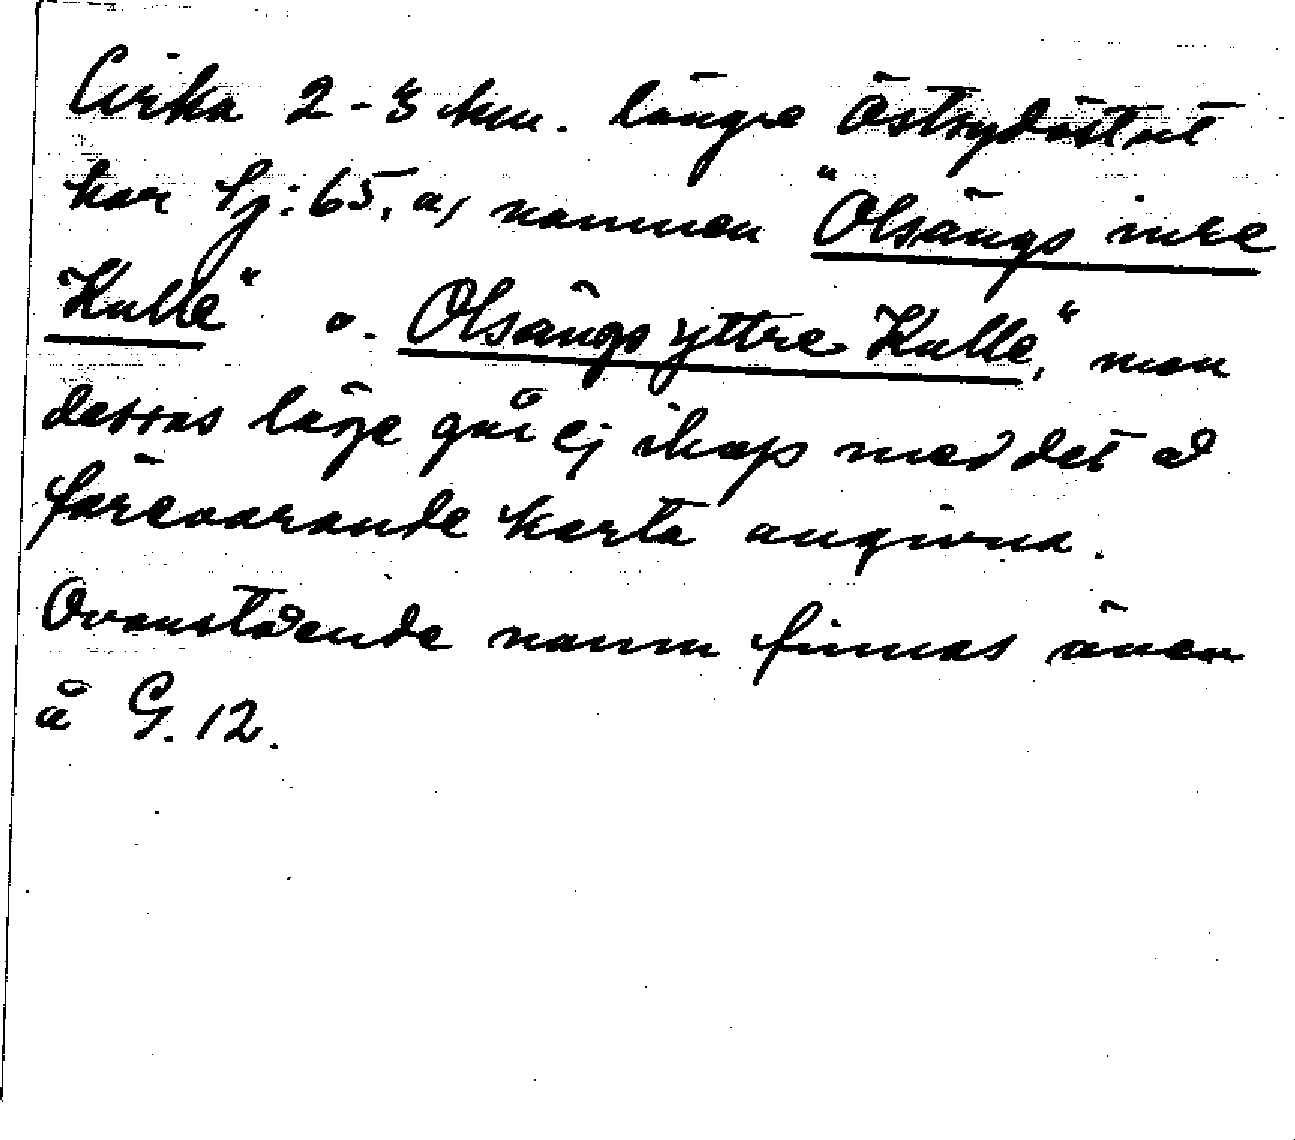 Cirka 2-3 km. längre östsydöstut
har Sj: 65, a, namnen "Olsängs inre
Kulle" o. Olsängs yttre Kulle," men
dessas läge går ej ihop med det å
förevarande karta angivna.
Ovanstående namn finnas även
å G. 12.